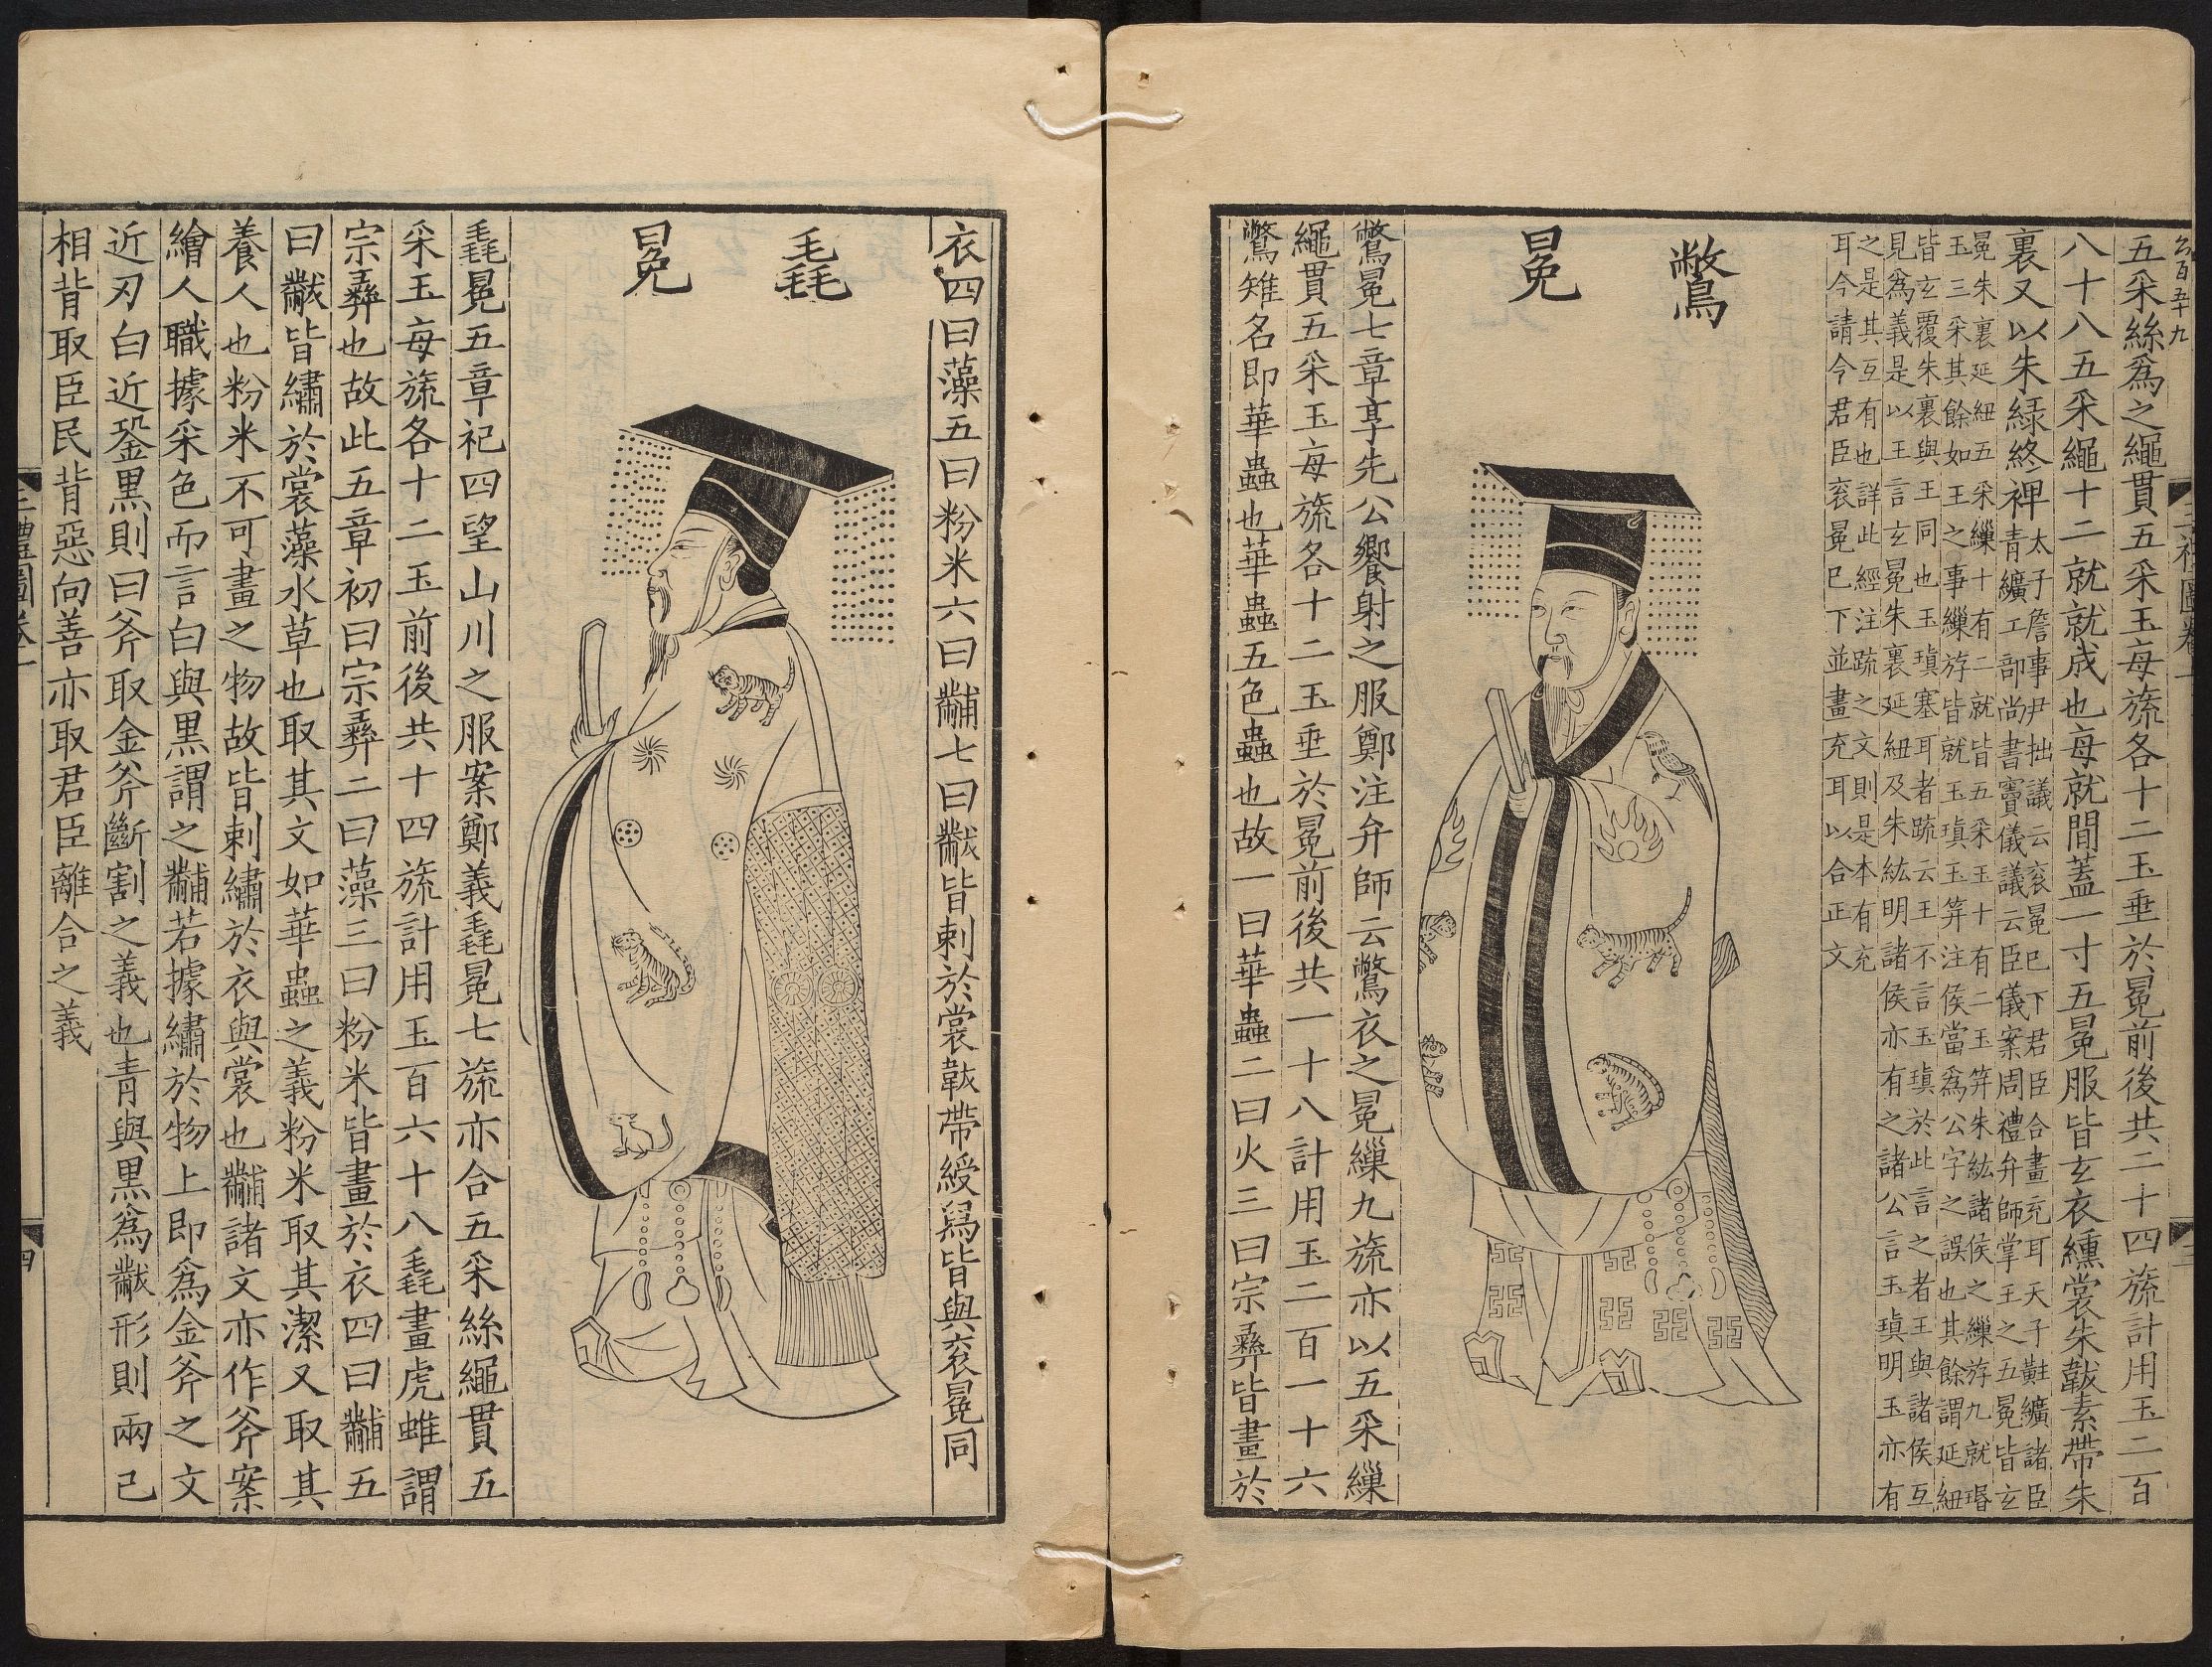 公百五十九
五采絲爲之繩貫五采玉每旒各十二玉垂於冕前後共二十四旒計用玉二百
八十八五采繩十二就就成也每就間蓋一寸五冕服皆玄衣纁裳朱韍素帶朱
裏又以朱緑終裨
太子詹事尹拙議云衮冕已下君臣合畫充耳天子黈纊諸臣
青纊工部尚書竇儀議云臣儀案周禮弁師掌王之五冕皆玄
冕朱裏延紐五采繅十有二就皆五采玉十有二玉笄朱紘諸侯之繅斿九就瑉
玉三采其餘如王之事繅斿皆就玉瑱玉笄注侯當爲公字之誤也其餘謂延紐
皆玄覆朱裏與王同也玉瑱塞耳者疏云王不言玉瑱於此言之者王與諸侯互
見爲義是以王言玄冕朱裏延紐及朱紘明諸侯亦有之諸公言玉瑱明玉亦有
之是其互有也詳此經注疏之文則是本有充
耳今請今君臣衮冕已下並畫充耳以合正文
三禮圖卷一
三
鷩
冕
鷩冕七章享先公饗射之服鄭注弁師云鷩衣之冕繅九旒亦以五采繅
繩貫五采玉每旒各十二玉垂於冕前後共一十八計用玉二百一十六
鷩雉名即華蟲也華蟲五色蟲也故一曰華蟲二曰火三曰宗彝皆畫於
衣四曰藻五曰粉米六曰黼七曰黻皆刺於裳韍帶綬舄皆與衮冕同
毳
冕
毳冕五章祀四望山川之服案鄭義毳冕七旒亦合五采絲繩貫五
采玉每旒各十二玉前後共十四旒計用玉百六十八毳畫虎蜼謂
宗彝也故此五章初曰宗彝二曰藻三曰粉米皆畫於衣四曰黼五
曰黻皆繡於裳藻水草也取其文如華蟲之義粉米取其潔又取其
養人也粉米不可畫之物故皆刺繡於衣與裳也黼諸文亦作斧案
繪人職據采色而言白與黑謂之黼若據繡於物上即爲金斧之文
近刃白近銎黑則曰斧取金斧斷割之義也青與黑爲黻形則兩己
相背取臣民背惡向善亦取君臣離合之義
三禮圖卷一
四